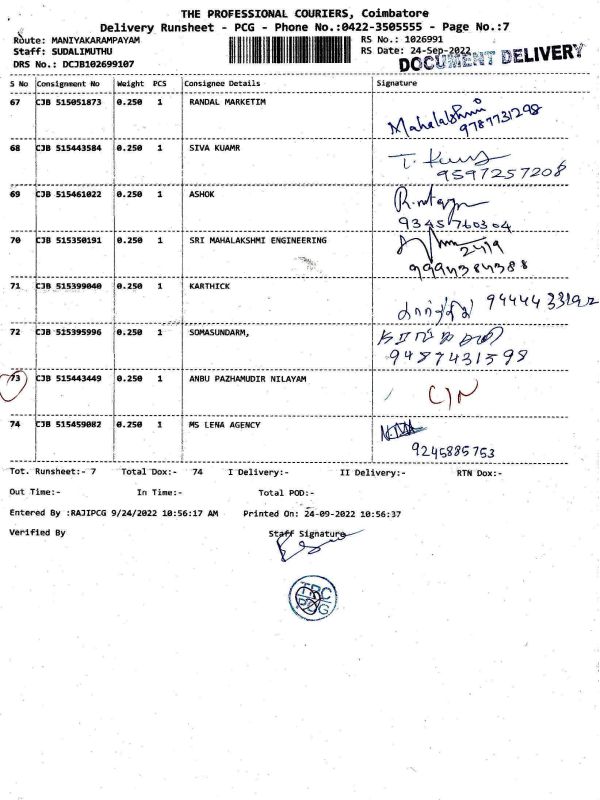 THE PROFESSIONAL COURIERS, Coimbatore
Delivery Runsheet - PCG - Phone No.:0422-3505555 - Page No.:7
Route: MANIYAKARAMPAYAM RS No.: 1026991
Staff: SUDALIMUTHU RS Date: 24-Sep-2022
DOCUMENT DELIVERY
DRS No.: DCJB102699107
S No Consignment No Weight PCS Consignee Details Signature
67 CJB 515051873 0.250 1 RANDAL MARKETIM
Mahalakshmi
9787731298
68 CJB 515443584 0.250 1 SIVA KUAMR
9597257208
69 CJB 515461022 0.250 1 ASHOK
9345760304
70 CJB 515350191 0.250 1 SRI MAHALAKSHMI ENGINEERING
24/9
9994384388
71 CJB 515399040 0.250 1 KARTHICK
72 CJB 515395996 0.250 1 SOMASUNDARM,
9487431598
73 CJB 515443449 0.250 1 ANBU PAZHAMUDIR NILAYAM
C/N
74 CJB 515459082 0.250 1 MS LENA AGENCY
9245885753
Tot. Runsheet:- 7 Total Dox:- 74 I Delivery:- II Delivery:- RTN Dox:-
Out Time:- In Time:- Total POD:-
Entered By :RAJIPCG 9/24/2022 10:56:17 AM Printed On: 24-09-2022 10:56:37
Verified By Staff Signature